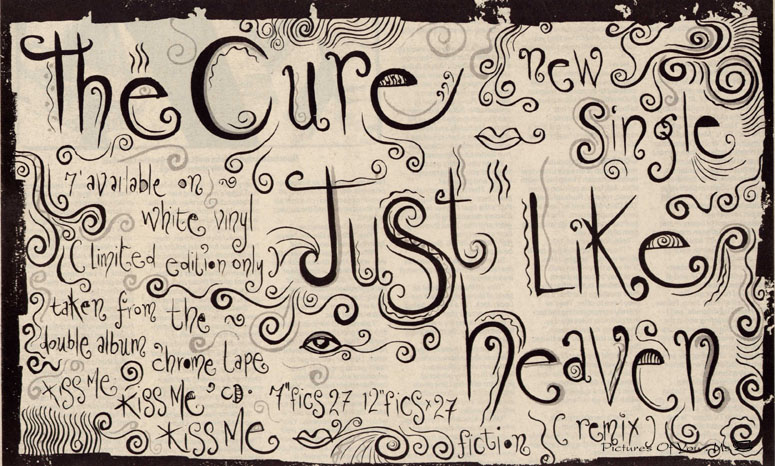 The Cure
new
single
7" available on
white vinyl
(limited edition only)
Just Like
heaven
taken from the
double album
chrome tape
KISS ME
KISS ME CD.
KISS ME
7"fics 27 12"fics x 27
fiction
(remix)
Pictures Of You